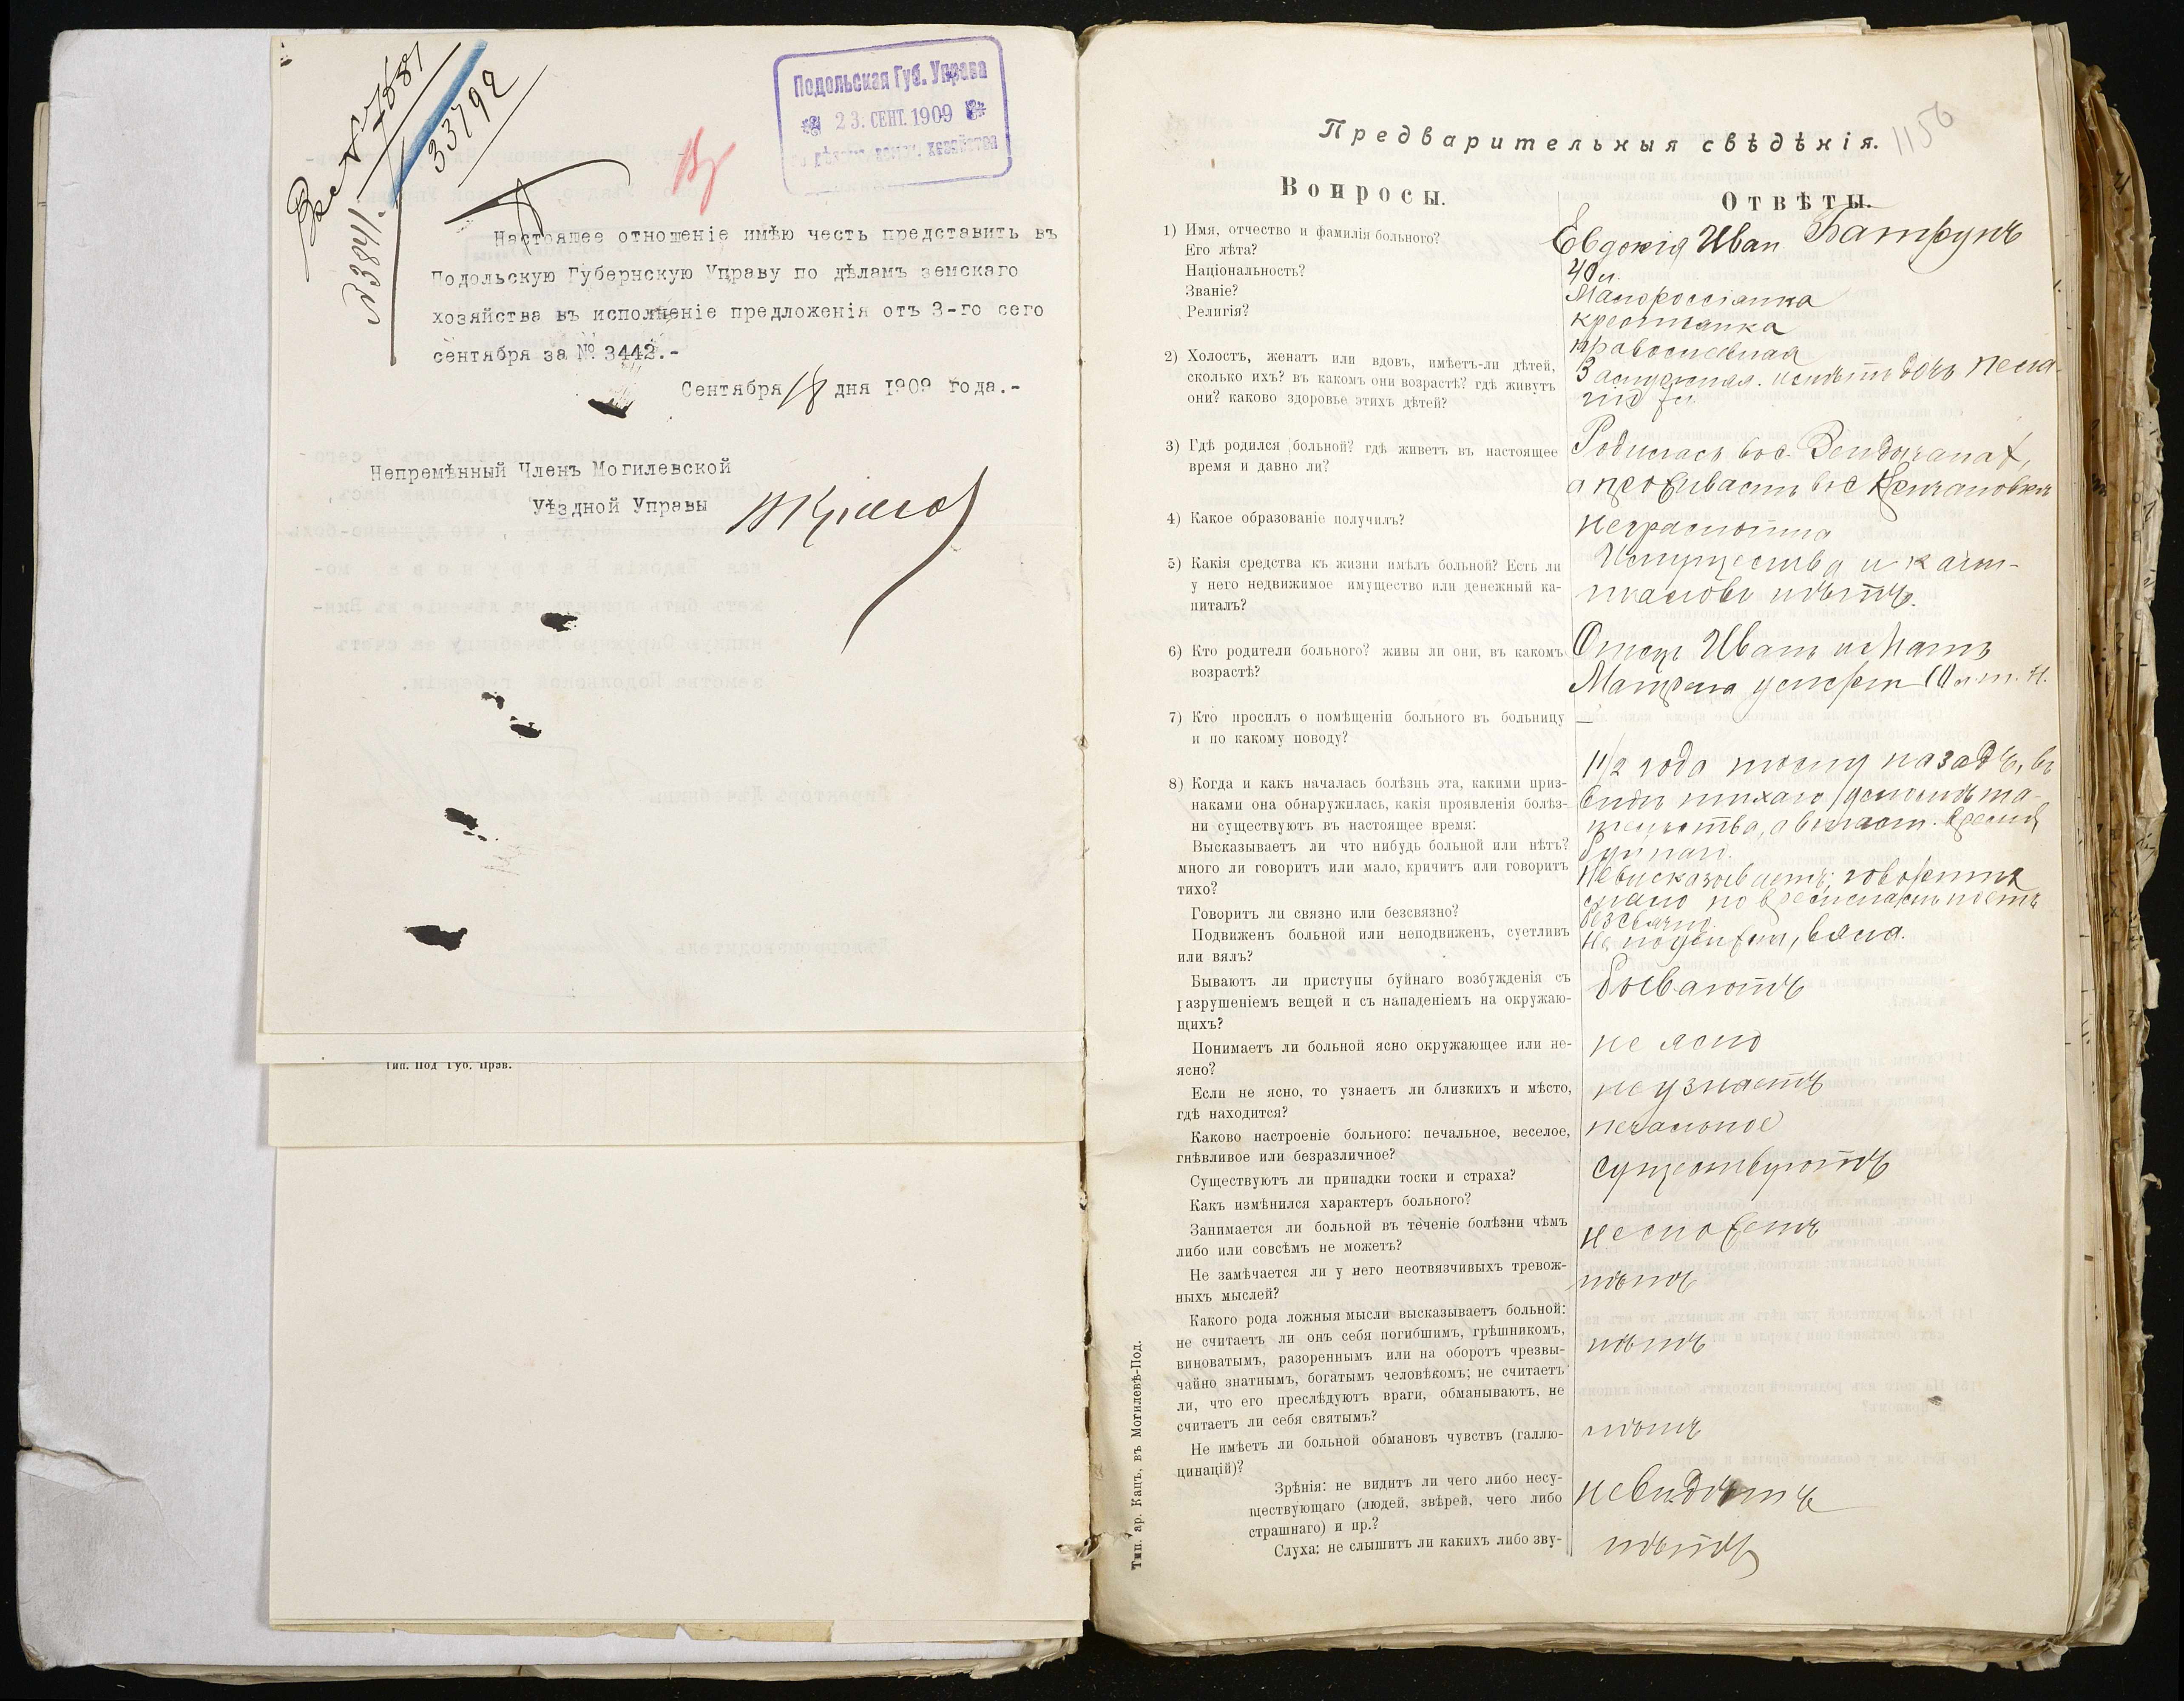 33792
№ 3841.
Подольская Губ. Управа
23. СЕНТ. 1909
по дѣламъ земск. хозяйства
Настоящее отношеніе имѣю честь представить въ
Подольскую Губернскую Управу по дѣламъ земскаго
хозяйства въ исполненіе предложенія отъ 3-го сего
сентября за № 3442.-
Сентября 18 дня 1909 года.-
Непремѣнный Членъ Могилевской
Уѣздной Управы
Тип. Под Губ. Прав.
1156
Предварительныя свѣдѣнія.
Вопросы.
Отвѣты.
1) Имя, отчество и фамилія больного?
Его лѣта?
Національность?
Званіе?
Религія?
Евдокія Иван Батрунъ
40 л.
Малороссіянка
крестьянка
православная
2) Холостъ, женатъ или вдовъ, имѣетъ-ли дѣтей,
сколько ихъ? въ какомъ они возрастѣ? гдѣ живутъ
они? каково здоровье этихъ дѣтей?
Замужняя. имѣетъ дочь
3) Гдѣ родился больной? гдѣ живетъ въ настоящее
время и давно ли?
Родилась во с. Вендичанах,
а проживаетъ в с
4) Какое образованіе получилъ?
неграмотна
5) Какія средства къ жизни имѣлъ больной? Есть ли
у него недвижимое имущество или денежный ка-
питалъ?
Имущества и капи-
таловъ нѣтъ.
6) Кто родители больного? живы ли они, въ какомъ
возрастѣ?
Отецъ Иванъ и Мать
Матрена умерли 10 лѣт. н.
7) Кто просилъ о помѣщеніи больного въ больницу
и по какому поводу?
—
8) Когда и какъ началась болѣзнь эта, какими приз-
наками она обнаружилась, какія проявленія болѣз-
ни существуютъ въ настоящее время:
1 1/2 года тому назадъ, въ
видѣ тихаго умопомѣша-
тельства, а в наст. время
буйнаго.
Высказываетъ ли что нибудь больной или нѣтъ?
много ли говоритъ или мало, кричитъ или говоритъ
тихо?
Невысказываетъ; говоритъ
мало но временами поетъ
Говоритъ ли связно или безсвязно?
безсвязно
Подвиженъ больной или неподвиженъ, суетливъ
или вялъ?
не подвижна, вяла.
Бываютъ ли приступы буйнаго возбужденія съ
разрушеніемъ вещей и съ нападеніемъ на окружаю-
щихъ?
бываютъ
Понимаетъ ли больной ясно окружающее или не-
ясно?
не ясно
Если не ясно, то узнаетъ ли близкихъ и мѣсто,
гдѣ находится?
не узнаетъ
Каково настроеніе больного: печальное, веселое,
гнѣвливое или безразличное?
печальное
Существуютъ ли припадки тоски и страха?
существуютъ
Какъ измѣнился характеръ больного?
Занимается ли больной въ теченіе болѣзни чѣмъ
либо или совсѣмъ не можетъ?
не можетъ
Не замѣчается ли у него неотвязчивыхъ тревож-
ныхъ мыслей?
нѣтъ
Какого рода ложныя мысли высказываетъ больной:
не считаетъ ли онъ себя погибшимъ, грѣшникомъ,
виноватымъ, разореннымъ или на оборотъ чрезвы-
чайно знатнымъ, богатымъ человѣкомъ; не считаетъ
ли, что его преслѣдуютъ враги, обманываютъ, не
считаетъ ли себя святымъ?
нѣтъ
Не имѣетъ ли больной обмановъ чувствъ (галлю-
цинацій)?
нѣтъ
Зрѣнія: не видитъ ли чего либо несу-
ществующаго (людей, звѣрей, чего либо
страшнаго) и пр.?
невидитъ
Слуха: не слышитъ ли какихъ либо зву-
нѣтъ
Тип. ар. Кацъ, въ Могилевѣ-Под.